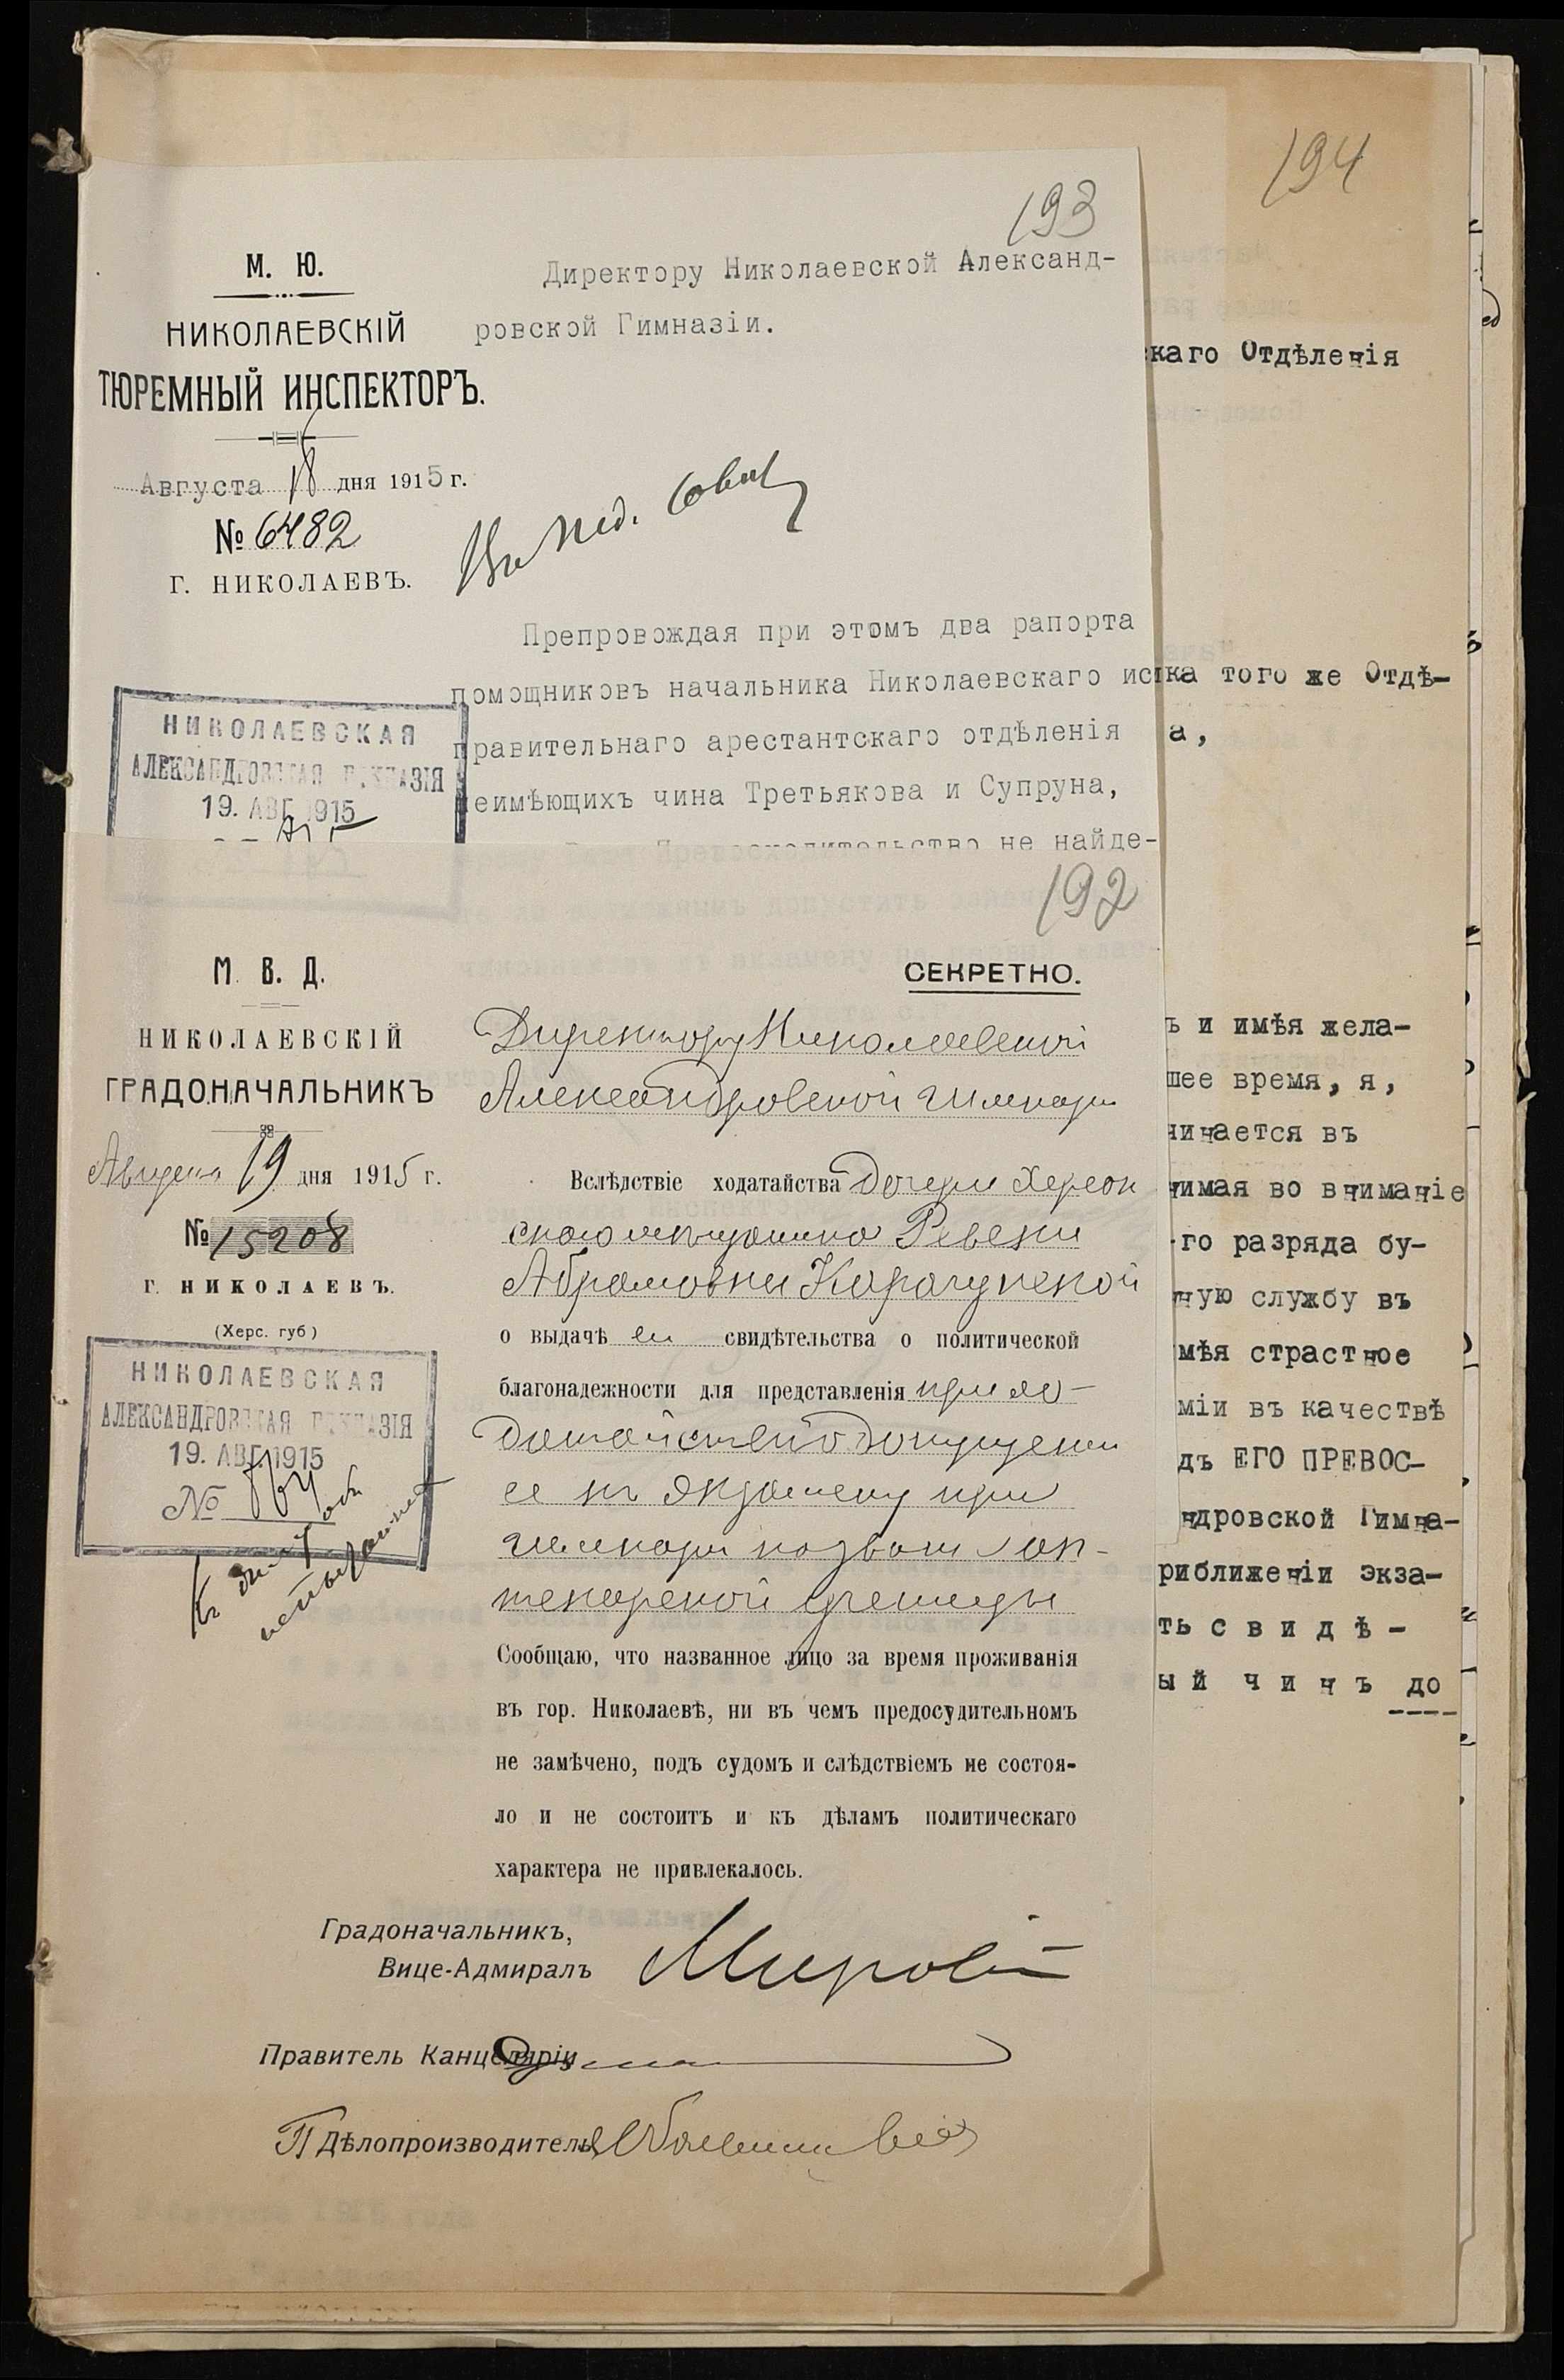 194
193
М. Ю.
НИКОЛАЕВСКІЙ
ТЮРЕМНЫЙ ИНСПЕКТОРЪ.
Августа 18 дня 1915 г.
№ 6482
Г. НИКОЛАЕВЪ.
Директору Николаевской Александ-
ровской Гимназіи.
Препровождая при этомъ два рапорта
помощниковъ начальника Николаевскаго ис
правительнаго арестантскаго отдѣленія
неимѣющихъ чина Третьякова и Супруна,
не найде-
НИКОЛАЕВСКАЯ
АЛЕКСАНДРОВСКАЯ ГИМНАЗІЯ
19. АВГ. 1915
192
М. В. Д.
НИКОЛАЕВСКІЙ
ГРАДОНАЧАЛЬНИКЪ
Августа 19 дня 1915 г.
№ 15208
Г. НИКОЛАЕВЪ.
(Херс. губ)
НИКОЛАЕВСКАЯ
АЛЕКСАНДРОВСКАЯ ГИМНАЗІЯ
19. АВГ. 1915
№
СЕКРЕТНО.
Директору Николаевской
Александровской гимназіи
Вслѣдствіе ходатайства дочери Херсон
скаго мѣщанина Ревеки
Абрамовны Карагунской
о выдачѣ ей свидѣтельства о политической
благонадежности для представленія при хо-
датайствѣ о допущеніи
ее къ экзамену при
гимназіи на званіе ап-
текарской ученицы
Сообщаю, что названное лицо за время проживанія
въ гор. Николаевѣ, ни въ чемъ предосудительномъ
не замѣчено, подъ судомъ и слѣдствіемъ не состоя-
ло и не состоитъ и къ дѣламъ политическаго
характера не привлекалось.
Градоначальникъ,
Вице-Адмиралъ
Правитель Канцеляріи
П Дѣлопроизводителя
скаго Отдѣленія
ка того же Отдѣ-
а,
ъ и имѣя жела-
шее время, я,
чинается въ
нимая во вниманіе
го разряда бу-
ную службу въ
мѣя страстное
міи въ качествѣ
дъ ЕГО ПРЕВОС-
ндровской Гимна-
риближеніи экза-
ть с в и д ѣ -
ый ч и н ъ до